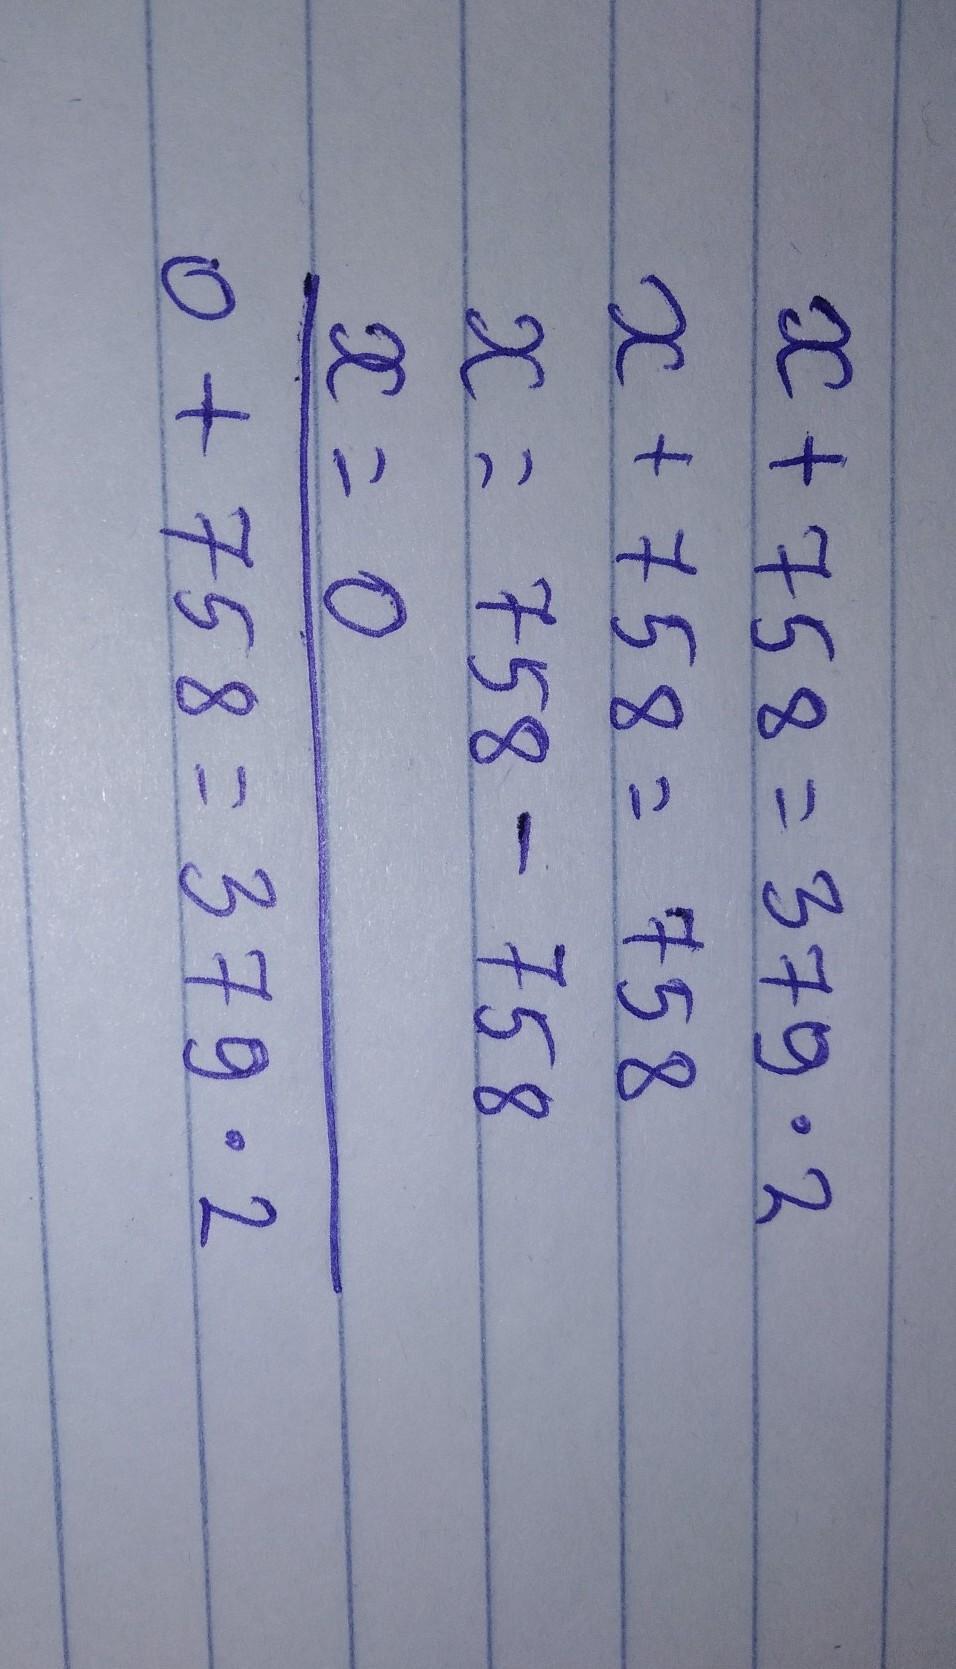 x + 758 = 379 · 2
x + 758 = 758
x = 758 - 758
x = 0
0 + 758 = 379 · 2